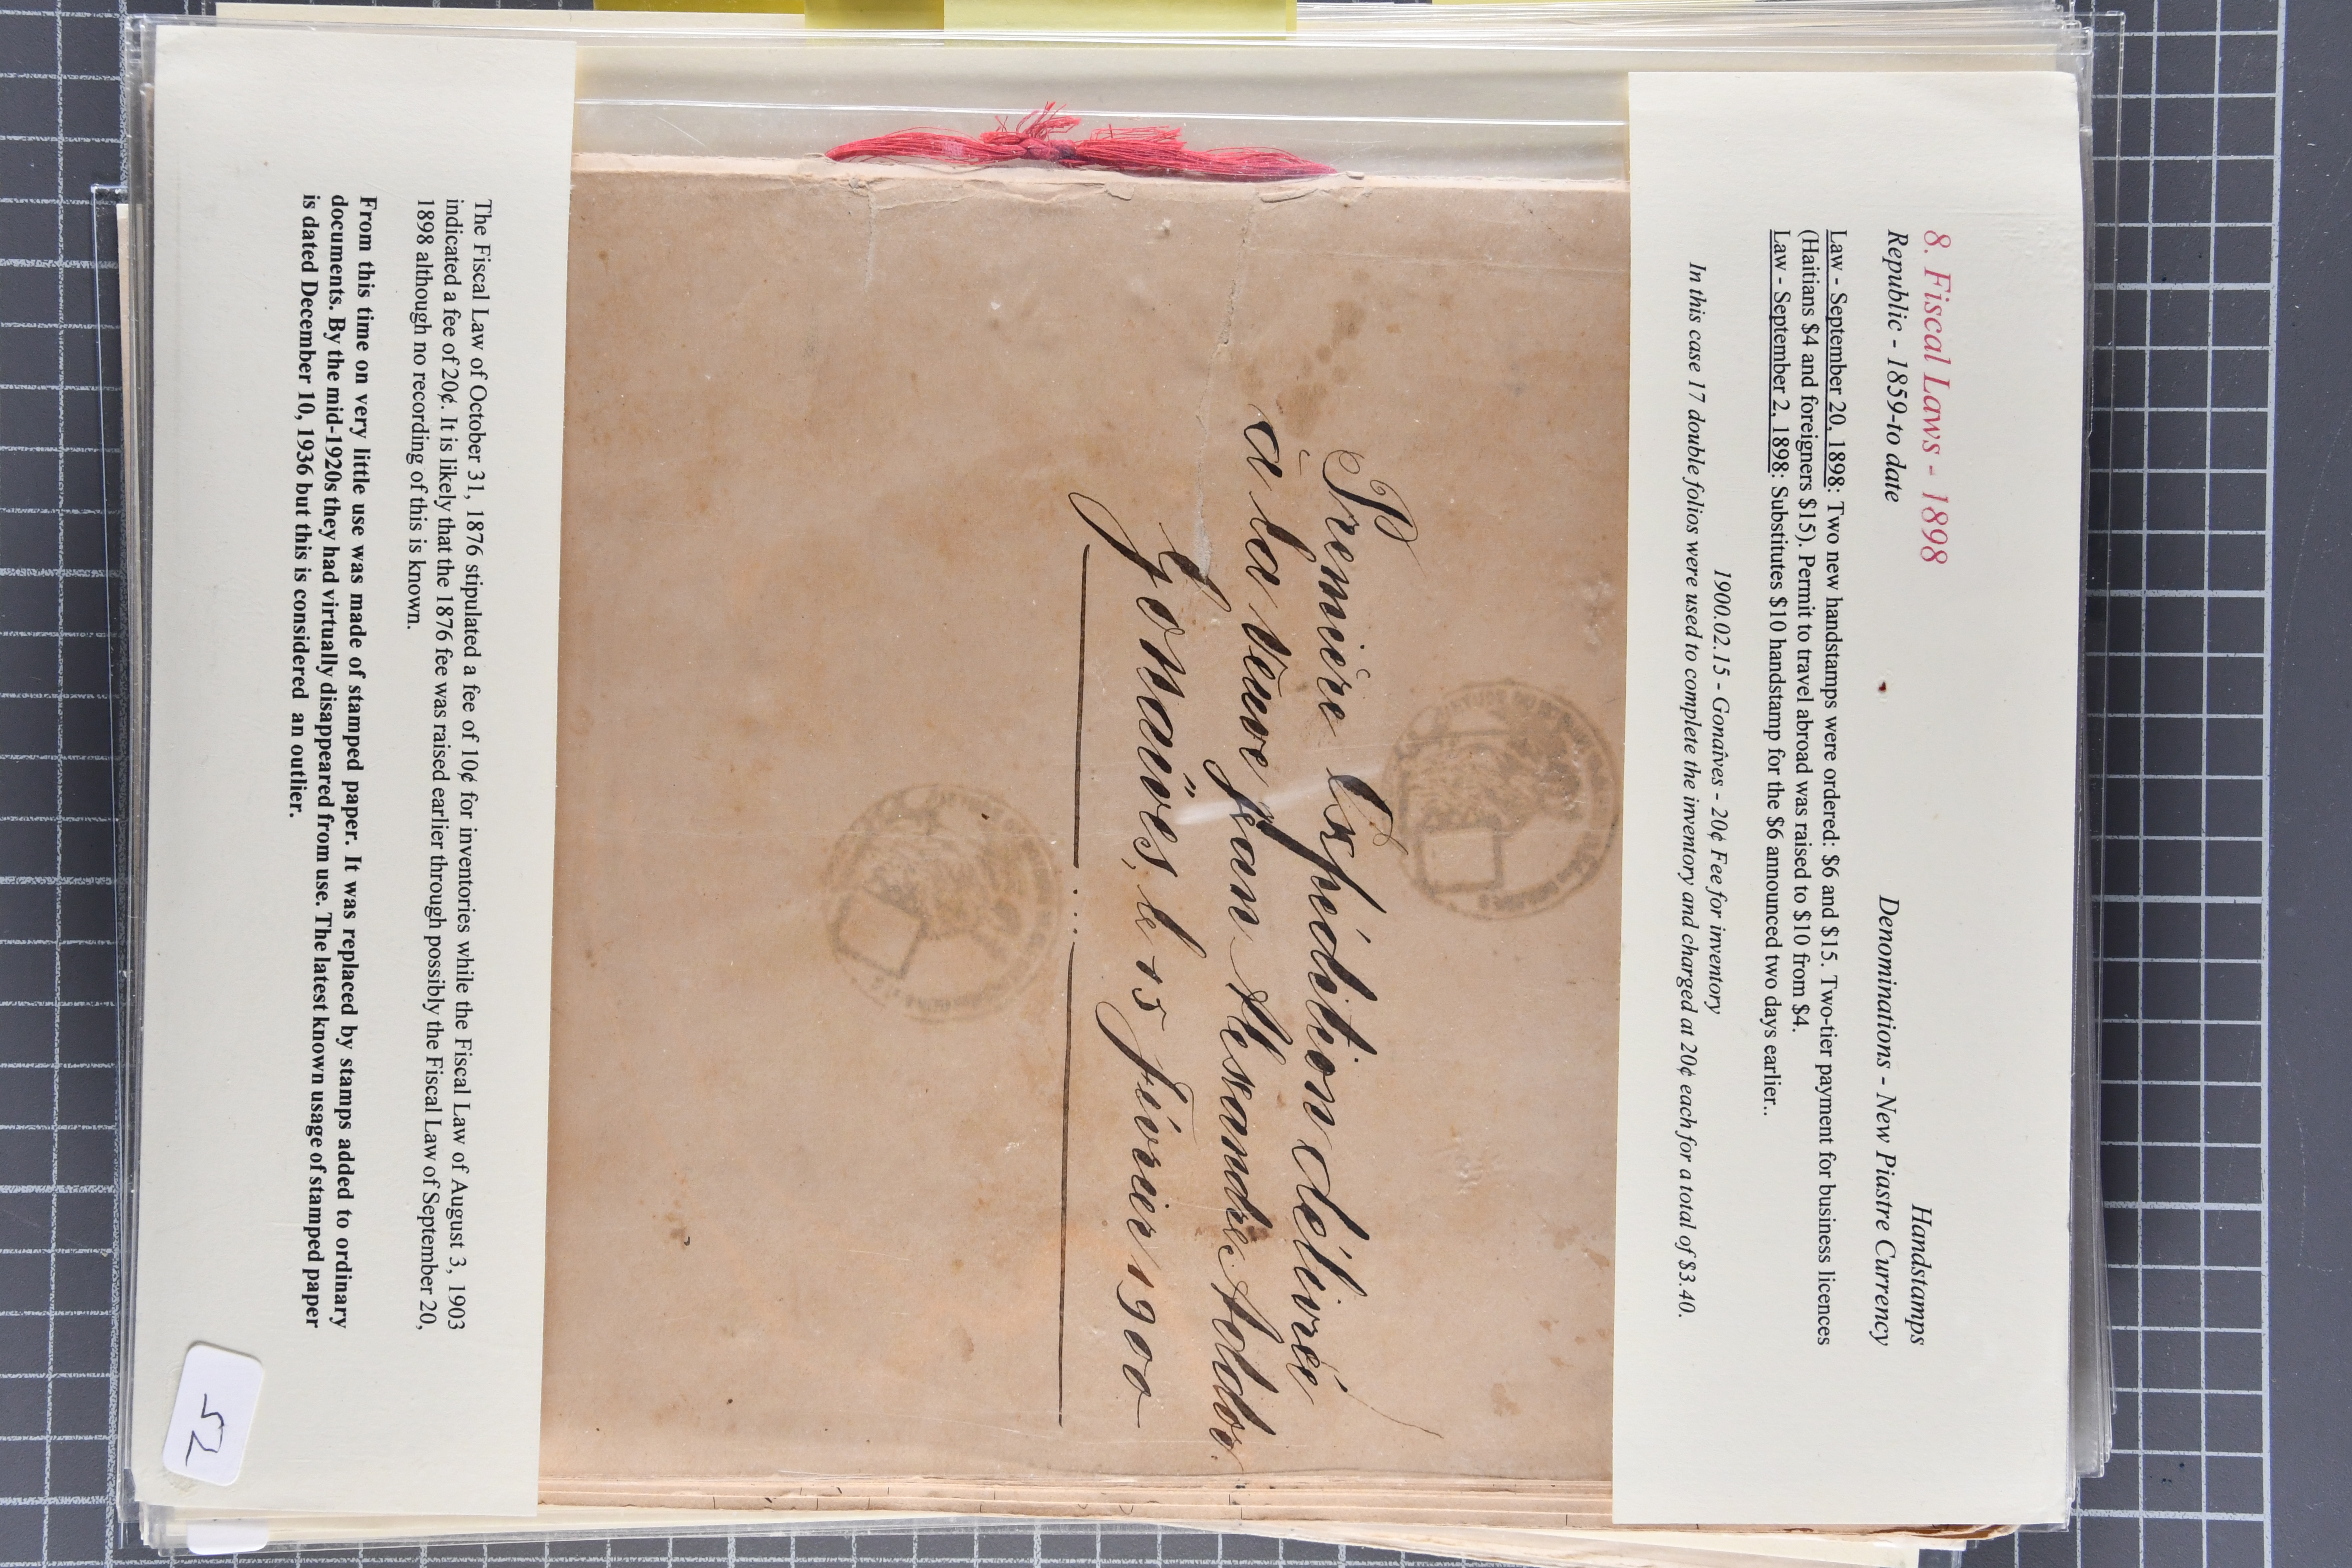 8. Fiscal Laws - 1898
Handstamps
Republic - 1859-to date
Denominations - New Piastre Currency
Law - September 20, 1898: Two new handstamps were ordered: $6 and $15. Two-tier payment for business licences
(Haitians $4 and foreigners $15). Permit to travel abroad was raised to $10 from $4.
Law - September 2, 1898: Substitutes $10 handstamp for the $6 announced two days earlier..
1900.02.15 - Gonaives - 20¢ Fee for inventory
In this case 17 double folios were used to complete the inventory and charged at 20¢ each for a total of $3.40.
Première Expédition délivrée
à la veuve Jean Alexandre Addor.
Gonaïves, le 15 février 1900
The Fiscal Law of October 31, 1876 stipulated a fee of 10¢ for inventories while the Fiscal Law of August 3, 1903
indicated a fee of 20¢. It is likely that the 1876 fee was raised earlier through possibly the Fiscal Law of September 20,
1898 although no recording of this is known.
From this time on very little use was made of stamped paper. It was replaced by stamps added to ordinary
documents. By the mid-1920s they had virtually disappeared from use. The latest known usage of stamped paper
is dated December 10, 1936 but this is considered an outlier.
52